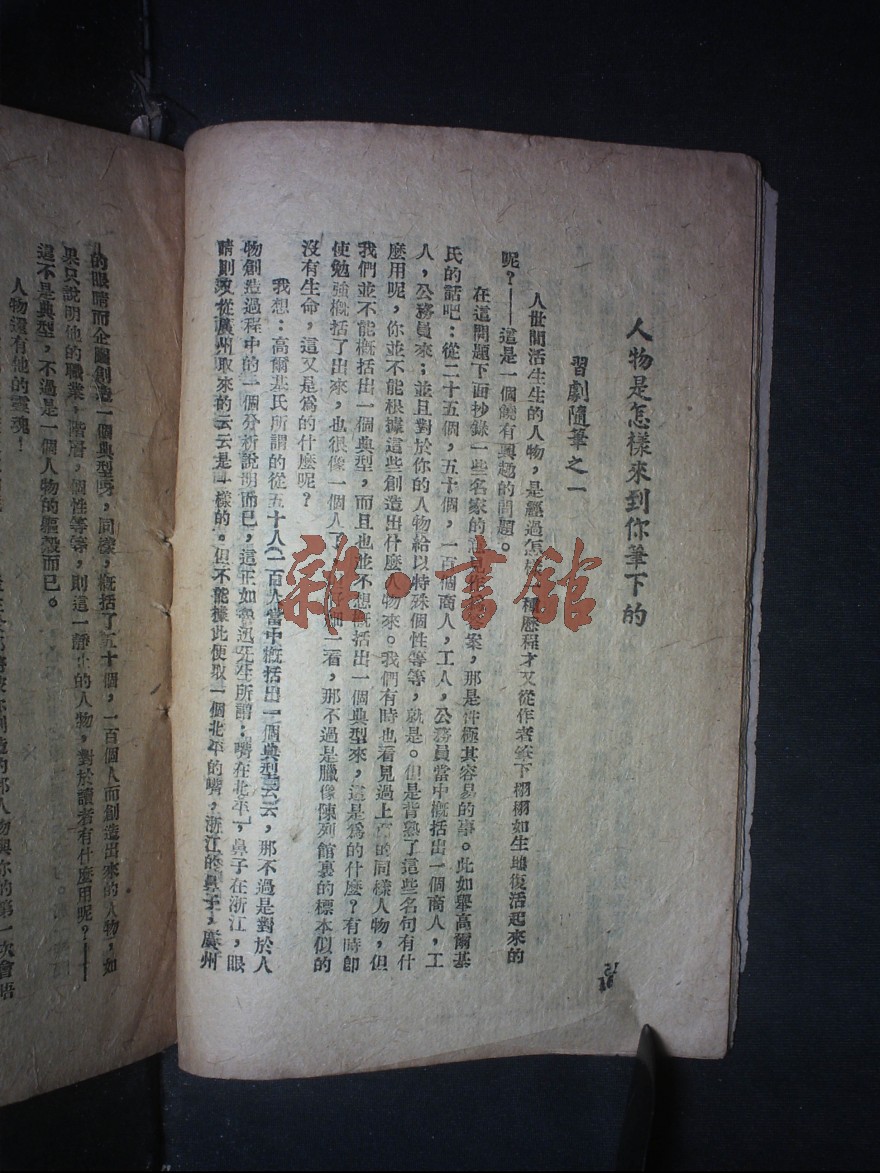 人物是怎樣來到你筆下的
習劇隨筆之一
人世間活生生的人物，是經過怎樣一種歷程才又從作者筆下栩栩如生地復活起來的
呢？——這是一個饒有興趣的問題。
在這問題下面抄錄一些名家的意見作為答案，那是件極其容易的事。比如舉高爾基
氏的話吧：從二十五個，五十個，一百個商人，工人，公務員當中概括出一個商人，工
人，公務員來；並且對於你的人物給以特殊個性等等，就是。但是背熟了這些名句有什
麼用呢，你並不能根據這些創造出什麼人物來。我們有時也看見過上百的同樣人物，但
我們並不能概括出一個典型，而且也並不想概括出一個典型來，這是為的什麼？有時即
使勉強概括了出來，也很像一個人了，仔細一看，那不過是臘像陳列館裏的標本似的
沒有生命，這又是為的什麼呢？
我想：高爾基氏所謂的從五十人（一百人）當中概括出一個典型云云，那不過是對於人
物創造過程中的一個分析說明而已，這正如魯迅先生所謂：嘴在北平，鼻子在浙江，眼
睛則又從廣州取來的云云是一樣的。但不能據此便取一個北平的嘴，浙江的鼻子，廣州
的眼睛而企圖創造一個典型呀，同樣，概括了五十個，一百個人而創造出來的人物，如
果只說明他的職業，階層，個性等等，則這一靜止的人物，對於讀者有什麼用呢？——
這不是典型，不過是一個人物的軀殼而已。
人物還有他的靈魂！
那人物與你的第一次會晤
雜·書館